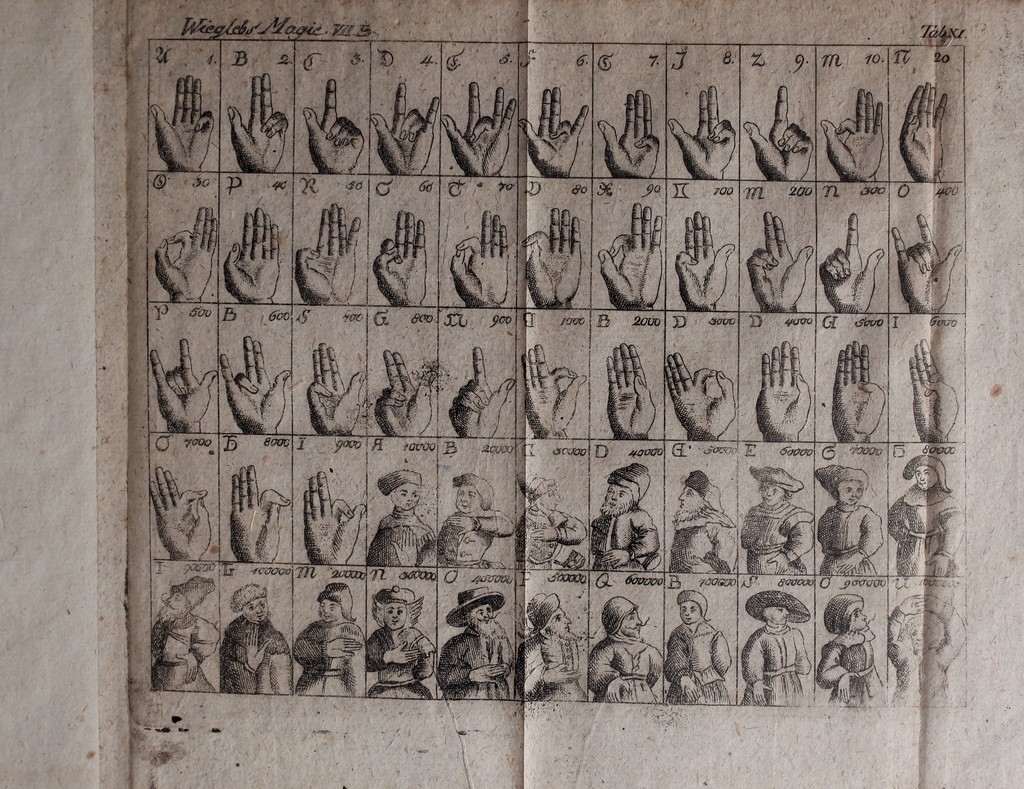 Wieglebs Magie. VII B. Tab. XI.
A 1. B 2. C 3. D 4. E 5. F 6. G 7. J 8. Z 9. M 10. N 20
O 30 P 40 R 50 60 T 70 80 90 100 M 200 N 300 O 400
P 500 B 600 S 700 G 800 M 900 1000 B 2000 D 3000 D 4000 5000 I 6000
7000 8000 I 9000 A 10000 B 20000 30000 D 40000 50000 E 60000 G 70000 80000
90000 100000 M 200000 N 300000 O 400000 500000 Q 600000 700000 S 800000 900000